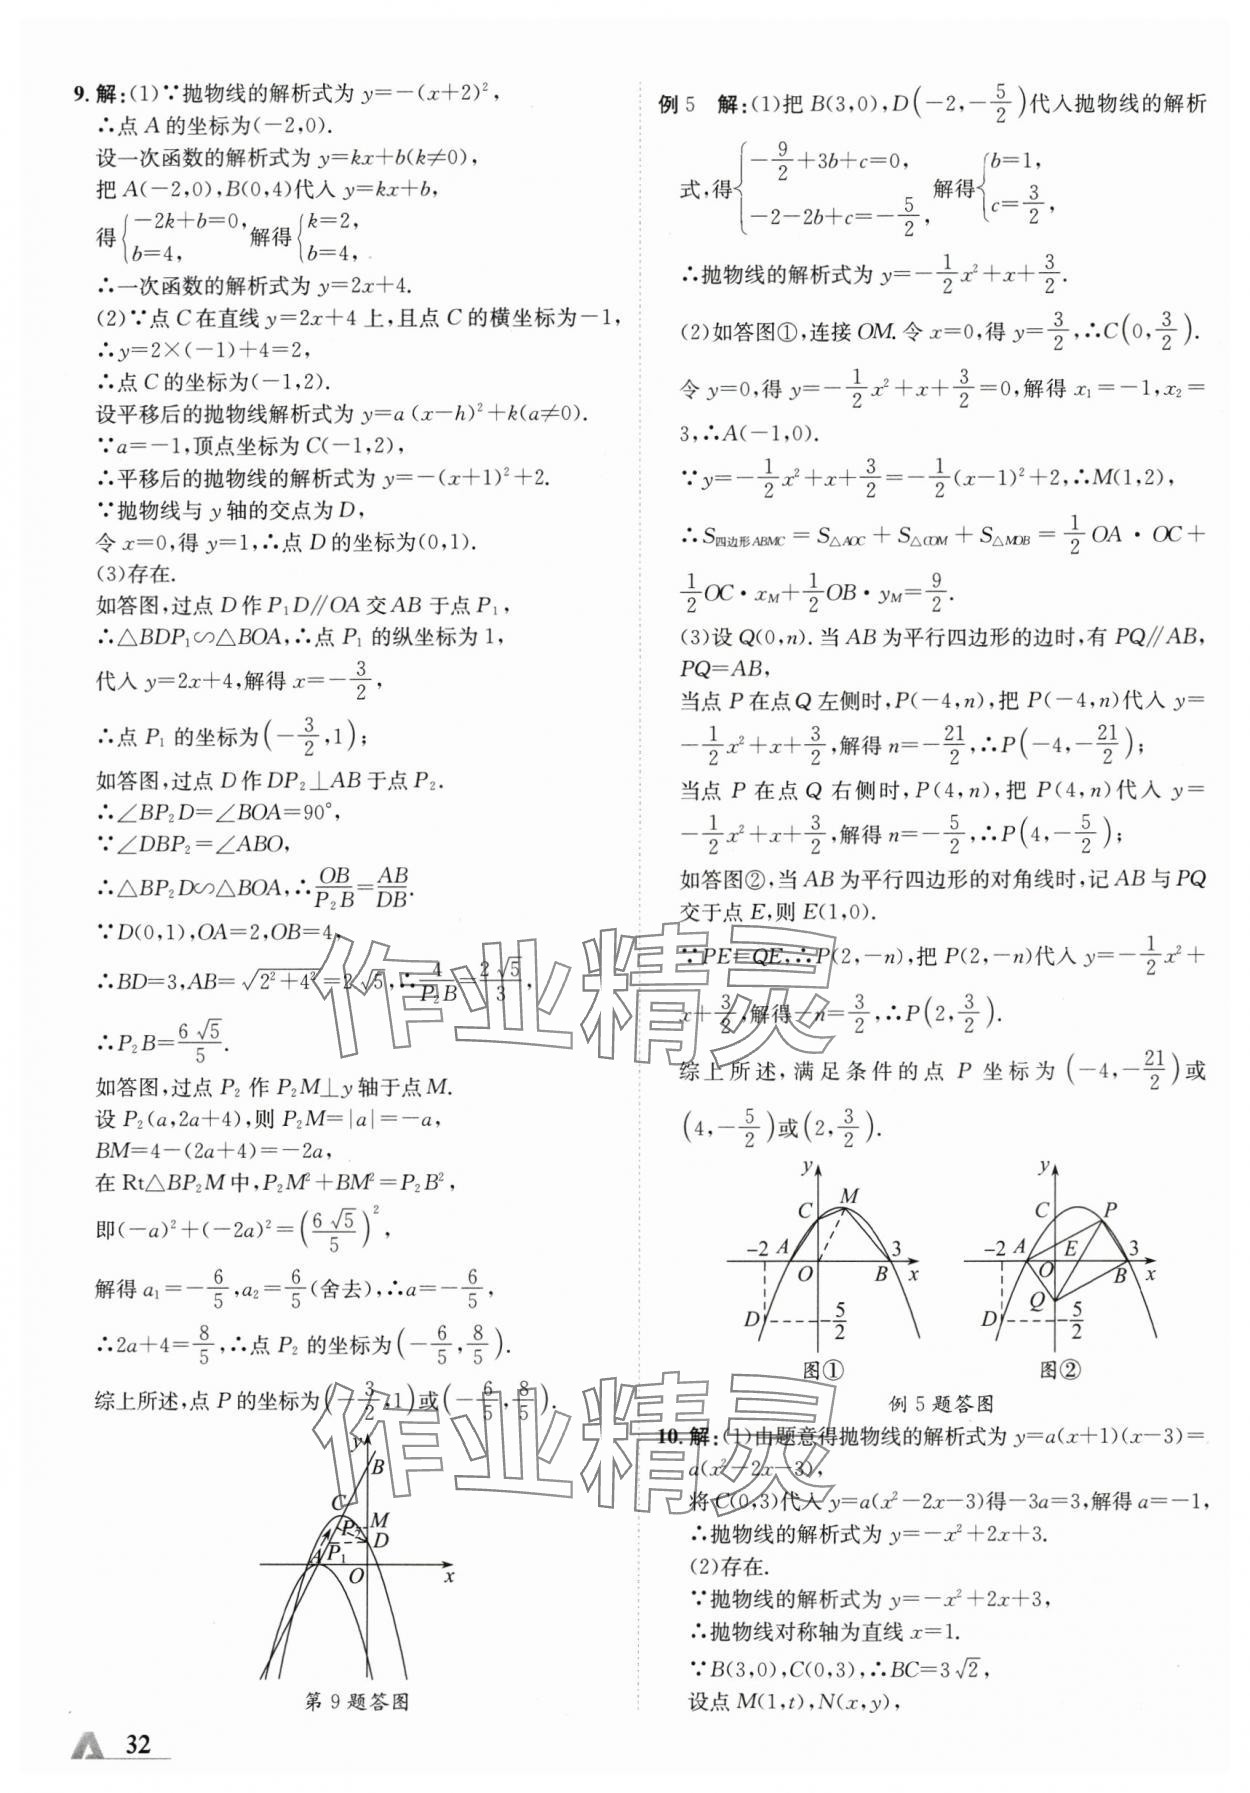 9. 解:(1)∵抛物线的解析式为 y=-(x+2)²,
∴点 A 的坐标为(-2,0).
设一次函数的解析式为 y=kx+b(k≠0),
把 A(-2,0),B(0,4)代入 y=kx+b,
得{-2k+b=0, b=4, 解得{k=2, b=4,
∴一次函数的解析式为 y=2x+4.
(2)∵点 C 在直线 y=2x+4 上,且点 C 的横坐标为-1,
∴y=2×(-1)+4=2,
∴点 C 的坐标为(-1,2).
设平移后的抛物线解析式为 y=a(x-h)²+k(a≠0).
∵a=-1,顶点坐标为 C(-1,2),
∴平移后的抛物线的解析式为 y=-(x+1)²+2.
∵抛物线与 y 轴的交点为 D,
令 x=0,得 y=1,∴点 D 的坐标为(0,1).
(3)存在.
如答图,过点 D 作 P₁D∥OA 交 AB 于点 P₁,
∴△BDP₁∽△BOA,∴点 P₁ 的纵坐标为 1,
代入 y=2x+4,解得 x=-3/2,
∴点 P₁ 的坐标为(-3/2,1);
如答图,过点 D 作 DP₂⊥AB 于点 P₂.
∴∠BP₂D=∠BOA=90°,
∵∠DBP₂=∠ABO,
∴△BP₂D∽△BOA,∴OB/P₂B=AB/DB.
∵D(0,1),OA=2,OB=4,
∴BD=3,AB=√(2²+4²)=2√5,∴4/P₂B=2√5/3,
∴P₂B=6√5/5.
如答图,过点 P₂ 作 P₂M⊥y 轴于点 M.
设 P₂(a,2a+4),则 P₂M=|a|=-a,
BM=4-(2a+4)=-2a,
在 Rt△BP₂M 中,P₂M²+BM²=P₂B²,
即(-a)²+(-2a)²=(6√5/5)²,
解得 a₁=-6/5,a₂=6/5(舍去),∴a=-6/5,
∴2a+4=8/5,∴点 P₂ 的坐标为(-6/5,8/5).
综上所述,点 P 的坐标为(-3/2,1)或(-6/5,8/5).
y
B
C
P₂ M
A P₁ D
O x
第 9 题答图
32
例 5 解:(1)把 B(3,0),D(-2,-5/2)代入抛物线的解析
式,得{-9/2+3b+c=0, -2-2b+c=-5/2, 解得{b=1, c=3/2,
∴抛物线的解析式为 y=-1/2x²+x+3/2.
(2)如答图①,连接 OM.令 x=0,得 y=3/2,∴C(0,3/2).
令 y=0,得 y=-1/2x²+x+3/2=0,解得 x₁=-1,x₂=
3,∴A(-1,0).
∵y=-1/2x²+x+3/2=-1/2(x-1)²+2,∴M(1,2),
∴S四边形ABMC=S△AOC+S△COM+S△MOB=1/2OA·OC+
1/2OC·xM+1/2OB·yM=9/2.
(3)设 Q(0,n).当 AB 为平行四边形的边时,有 PQ∥AB,
PQ=AB,
当点 P 在点 Q 左侧时,P(-4,n),把 P(-4,n)代入 y=
-1/2x²+x+3/2,解得 n=-21/2,∴P(-4,-21/2);
当点 P 在点 Q 右侧时,P(4,n),把 P(4,n)代入 y=
-1/2x²+x+3/2,解得 n=-5/2,∴P(4,-5/2);
如答图②,当 AB 为平行四边形的对角线时,记 AB 与 PQ
交于点 E,则 E(1,0).
∵PE=QE,∴P(2,-n),把 P(2,-n)代入 y=-1/2x²+
x+3/2,解得-n=3/2,∴P(2,3/2).
综上所述,满足条件的点 P 坐标为(-4,-21/2)或
(4,-5/2)或(2,3/2).
y
C M
-2 A 3
O B x
D -5/2
图①
y
C P
-2 A E 3
O B x
Q
D -5/2
图②
例 5 题答图
10. 解:(1)由题意得抛物线的解析式为 y=a(x+1)(x-3)=
a(x²-2x-3),
将 C(0,3)代入 y=a(x²-2x-3)得-3a=3,解得 a=-1,
∴抛物线的解析式为 y=-x²+2x+3.
(2)存在.
∵抛物线的解析式为 y=-x²+2x+3,
∴抛物线对称轴为直线 x=1.
∵B(3,0),C(0,3),∴BC=3√2,
设点 M(1,t),N(x,y),
作业精灵
作业精灵